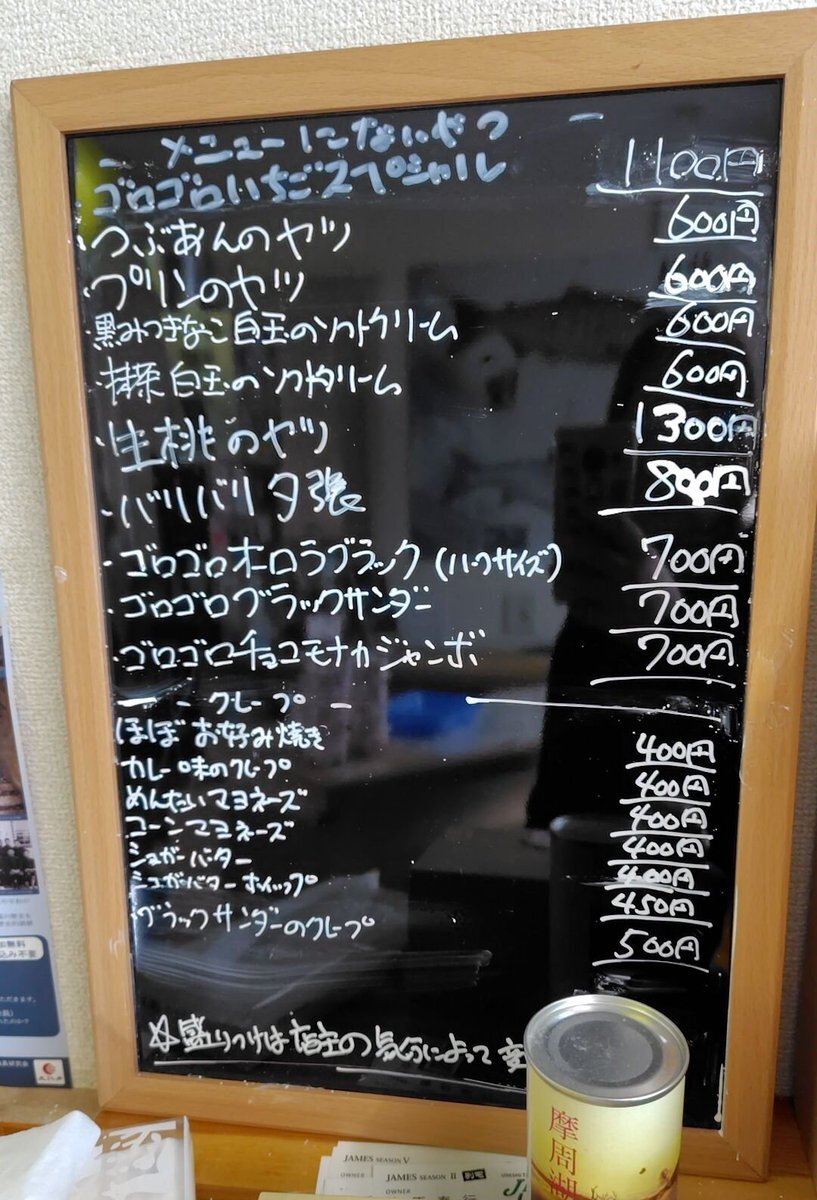 メニューにないやつ
ゴロゴロいちごスペシャル 1100円
・つぶあんのヤツ 600円
・プリンのヤツ 600円
・黒みつきなこ白玉のソフトクリーム 600円
・抹茶白玉のソフトクリーム 600円
・生桃のヤツ 1300円
・バリバリ夕張 800円
・ゴロゴロオーロラブラック(ハーフサイズ) 700円
・ゴロゴロブラックサンダー 700円
・ゴロゴロチョコモナカジャンボ 700円
クレープ
ほぼお好み焼き 400円
カレー味のクレープ 400円
めんたいマヨネーズ 400円
コーンマヨネーズ 400円
シュガーバター 400円
シュガーバターホイップ 450円
ブラックサンダーのクレープ 500円
☆盛りつけは店主の気分によって変
摩周湖
JAMES SEASON V
OWNER
JAMES SEASON II 別宅
OWNER